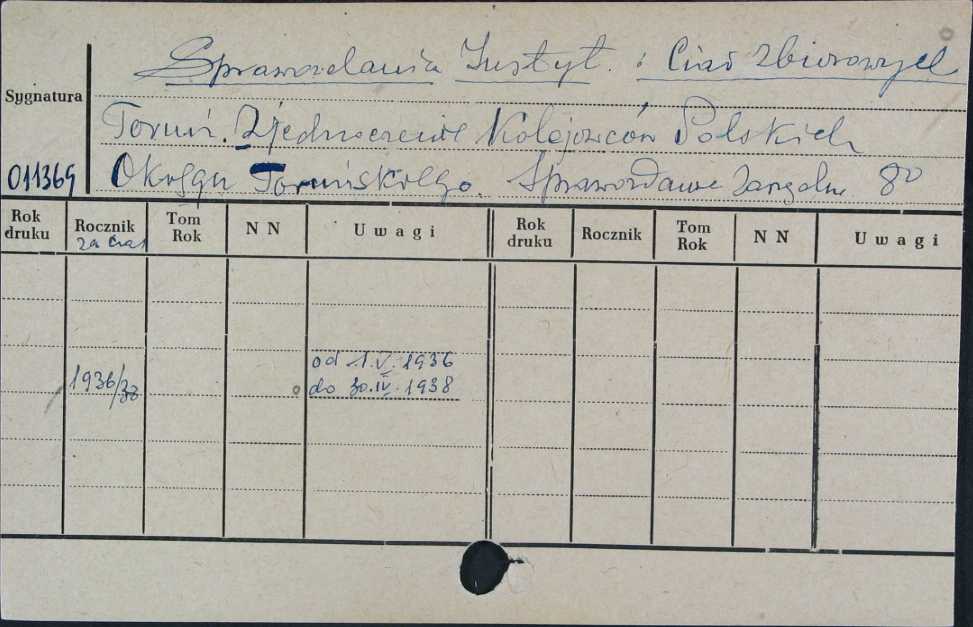 Sprawozdania Instyt. i Ciał Zbiorowych
Sygnatura
Toruń. Zjednoczenie Kolejowców Polskich
011369 Okręgu Toruńskiego. Sprawozdanie 8º
Rok druku Rocznik za czas Tom Rok N N Uwagi Rok druku Rocznik Tom Rok N N Uwagi
od 1.V.1936
1936/38 do 30.IV.1938